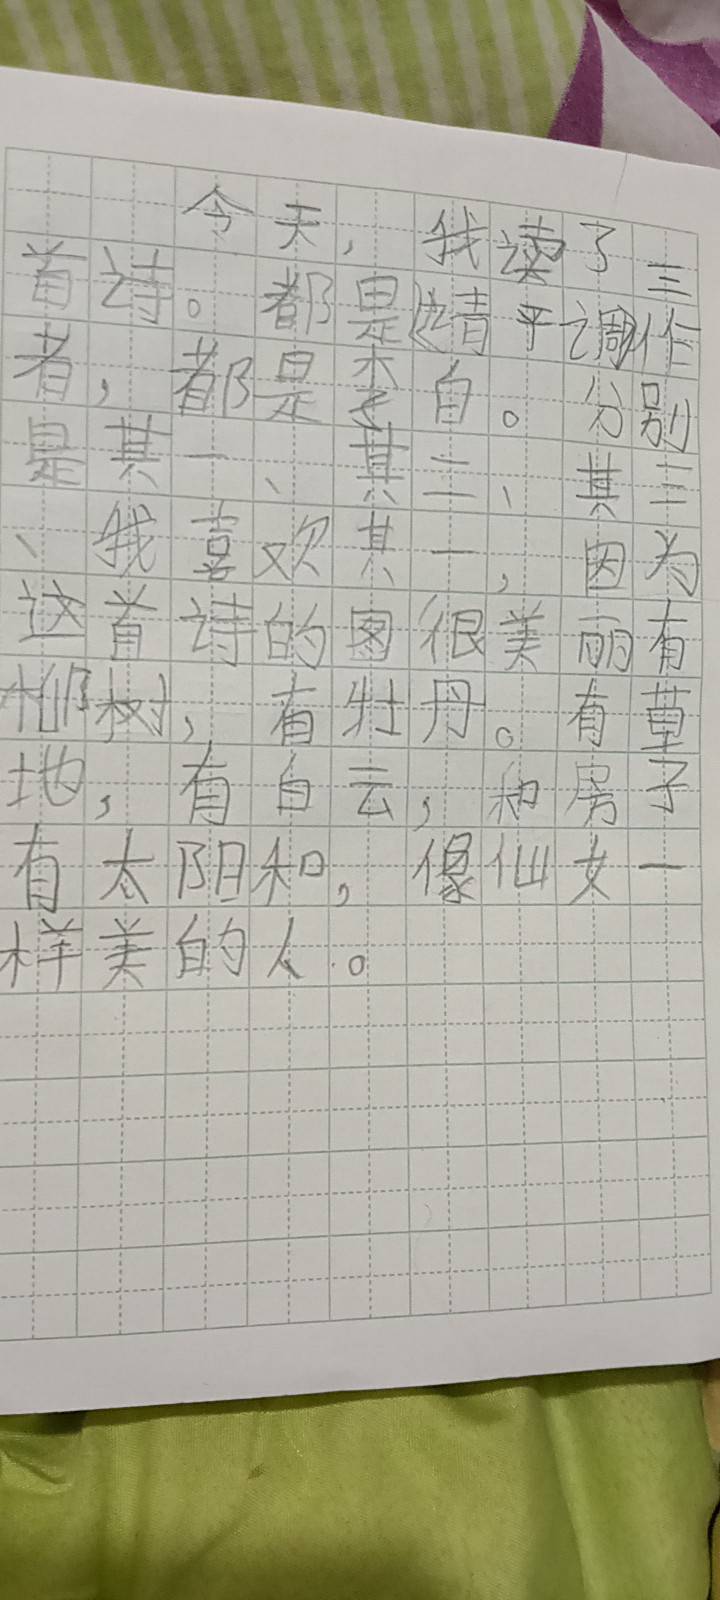 今天，我读了三
首诗。都是清平调作
者，都是李白。分别
是其一、其二、其三
、我喜欢其一，因为
这首诗的图很美丽有
柳树，有牡丹。有草
地，有白云，和房子
有太阳和，像仙女一
样美的人。